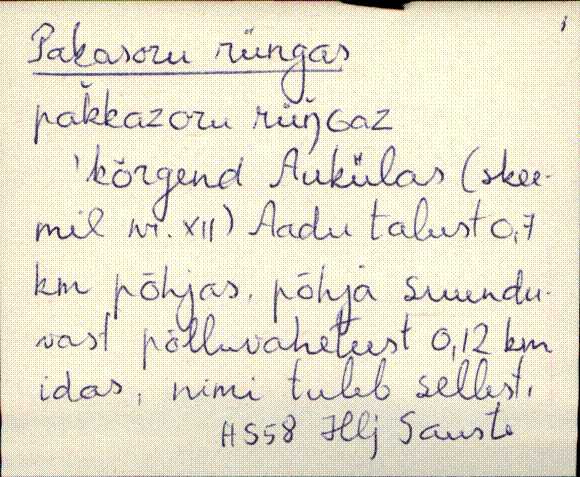 Pakasoru rüngas
pak̆kazoru rüŋ̆Gaz
'kõrgend Aukülas (skee-
mil nr. XII) Aadu talust 0,7
km põhjas, põhja suundu-
vast põlluvaheteest 0,12 km
idas, nimi tuleb sellest,
HS58 Hlj